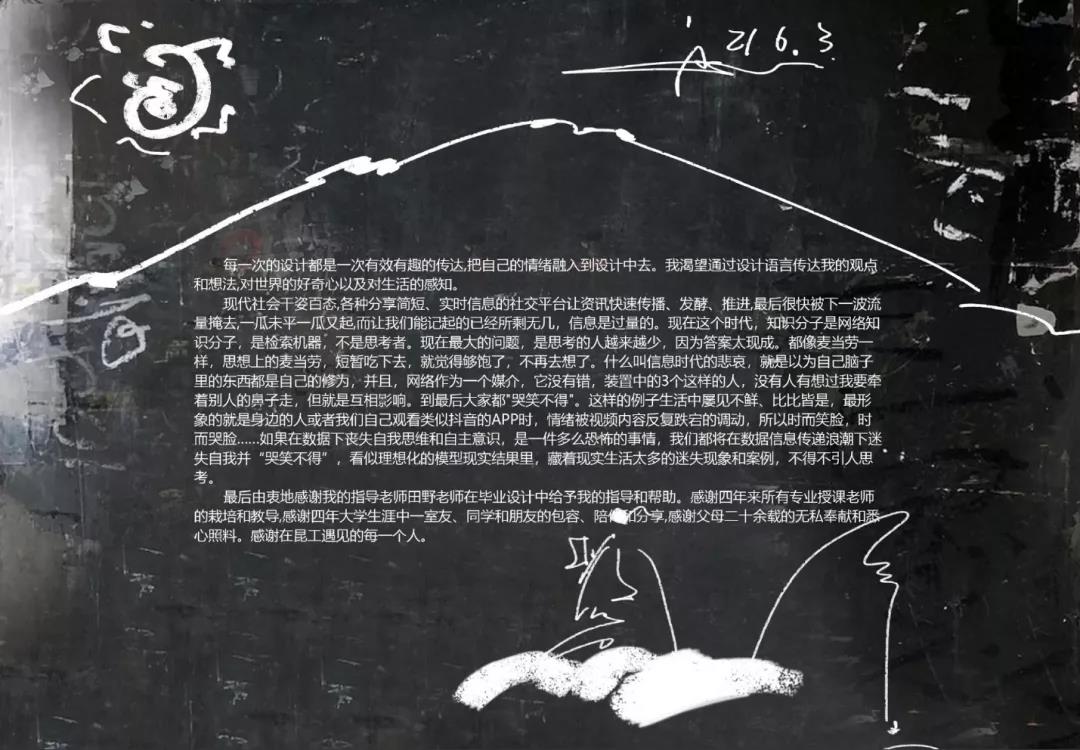 21 6. 3
每一次的设计都是一次有效有趣的传达,把自己的情绪融入到设计中去。我渴望通过设计语言传达我的观点
和想法,对世界的好奇心以及对生活的感知。
现代社会千姿百态,各种分享简短、实时信息的社交平台让资讯快速传播、发酵、推进,最后很快被下一波流
量掩去,一瓜未平一瓜又起,而让我们能记起的已经所剩无几，信息是过量的。现在这个时代，知识分子是网络知
识分子，是检索机器，不是思考者。现在最大的问题，是思考的人越来越少，因为答案太现成。都像麦当劳一
样，思想上的麦当劳，短暂吃下去，就觉得够饱了，不再去想了。什么叫信息时代的悲哀，就是以为自己脑子
里的东西都是自己的修为，并且，网络作为一个媒介，它没有错，装置中的3个这样的人，没有人有想过我要牵
着别人的鼻子走，但就是互相影响。到最后大家都"哭笑不得"。这样的例子生活中屡见不鲜、比比皆是，最形
象的就是身边的人或者我们自己观看类似抖音的APP时，情绪被视频内容反复跌宕的调动，所以时而笑脸，时
而哭脸......如果在数据下丧失自我思维和自主意识，是一件多么恐怖的事情，我们都将在数据信息传递浪潮下迷
失自我并“哭笑不得”，看似理想化的模型现实结果里，藏着现实生活太多的迷失现象和案例，不得不引人思
考。
最后由衷地感谢我的指导老师田野老师在毕业设计中给予我的指导和帮助。感谢四年来所有专业授课老师
的栽培和教导,感谢四年大学生涯中一室友、同学和朋友的包容、陪伴和分享,感谢父母二十余载的无私奉献和悉
心照料。感谢在昆工遇见的每一个人。